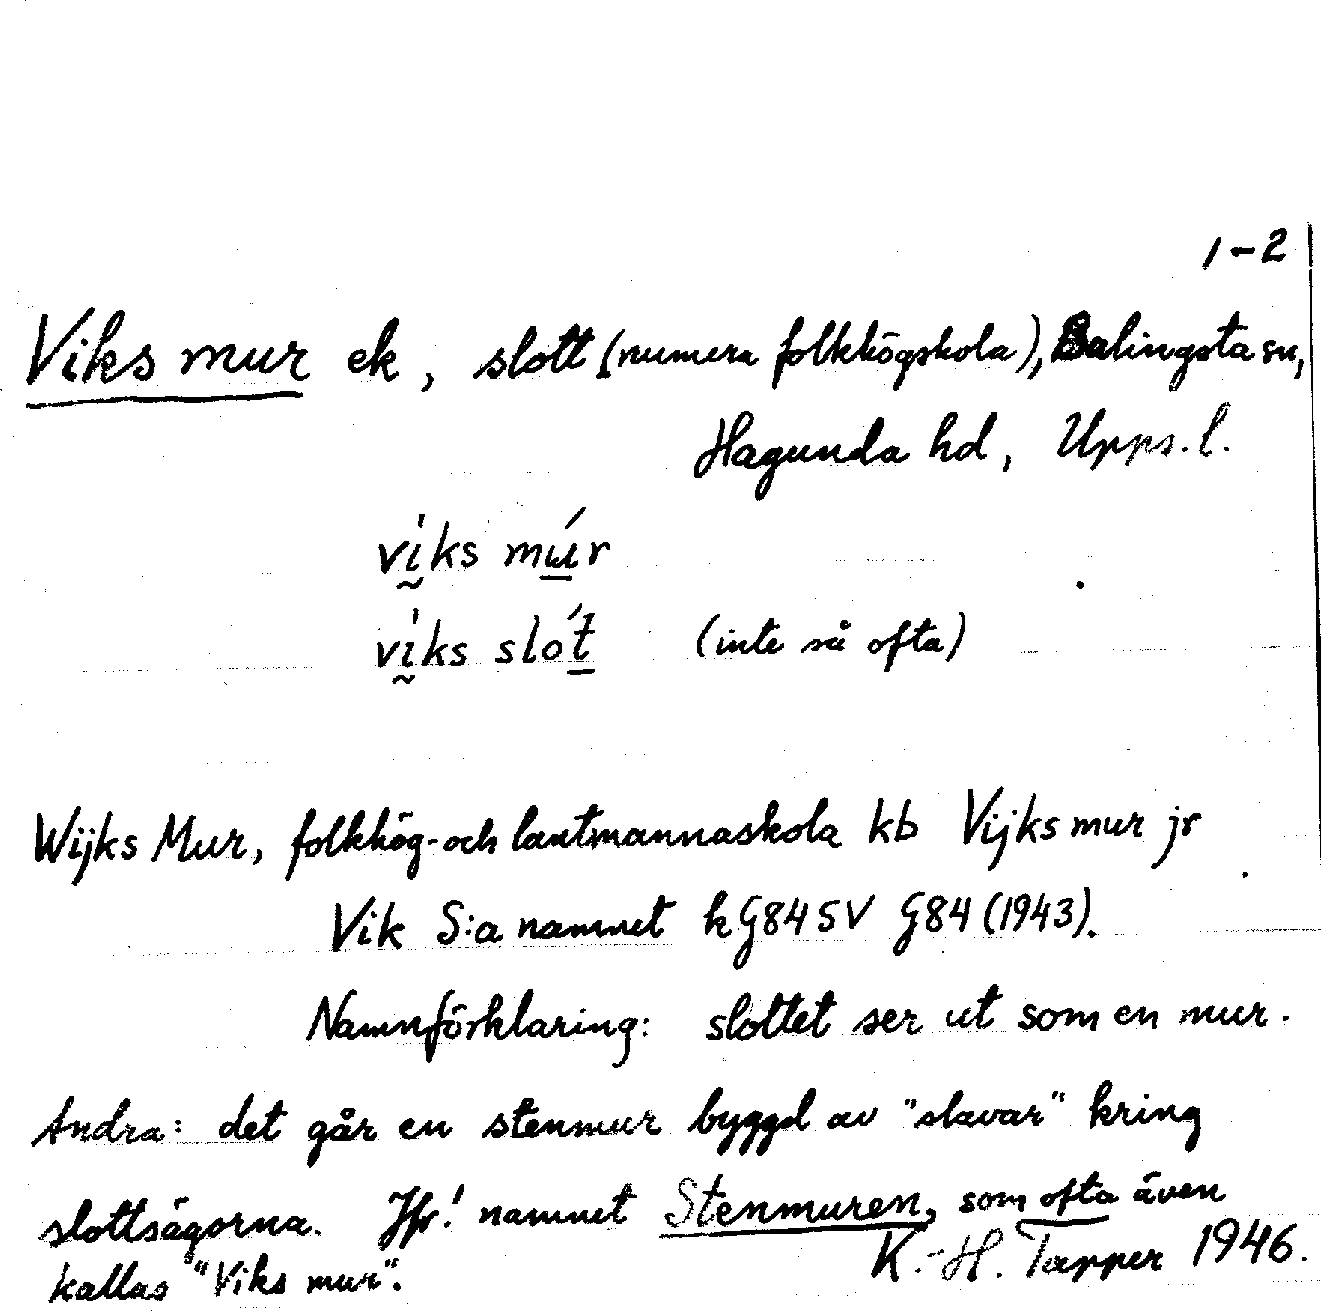 1-2
Viks mur ek, slott (numera folkhögskola), Balingsta sn,
Hagunda hd, Upps. l.
vḭ̍ks mú̲r
vḭ̍ks slót̲ (inte så ofta)
Wijks Mur, folkhög- och lantmannaskola kb Vijks mur jr
Vik S:a namnet k G84SV G84 (1943).
Namnförklaring: slottet ser ut som en mur.
Andra: det går en stenmur byggd av "slavar" kring
slottsägorna. Jfr! namnet Stenmuren, som ofta även
kallas "Viks mur".
K.-H. Tapper 1946.